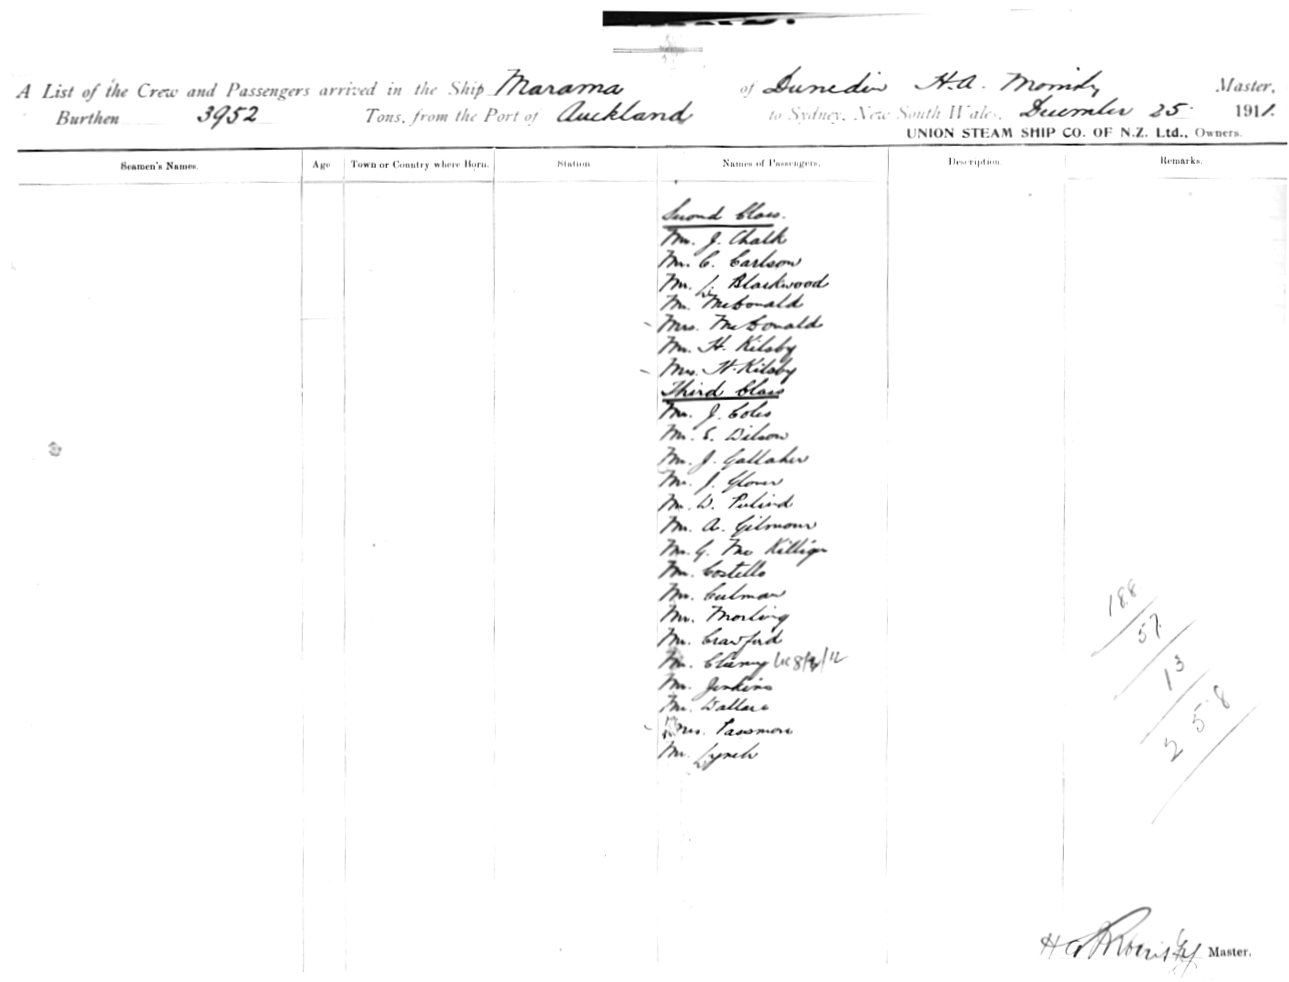 A List of the Crew and Passengers arrived in the Ship Marama of Dunedin H.A. Master,
Burthen 3952 Tons, from the Port of Auckland to Sydney, New South Wales, December 25 1911.
UNION STEAM SHIP CO. OF N.Z. Ltd., Owners.
Seamen's Names. Age Town or Country where Born. Station Names of Passengers. Description. Remarks.
Second Class.
Mr. J. Chalk
Mr. C. Carlson
Mr. J. Blackwood
Mr. McDonald
Mrs. McDonald
Mr. H. Kilsby
Mrs. H. Kilsby
Third Class
Mr. J. Coles
Mr. S. Wilson
Mr. J. Gallaher
Mr. J. Glover
Mr. W.
Mr. A. Gilmour
Mr. G. Mc
Mr. Costello
Mr.
Mr. Morling
Mr. Crawford
Mr.
Mr. Jenkins
Mr. Wallace
Mrs. Passmore
Mr. Lynch
188
57
13
258
Master.